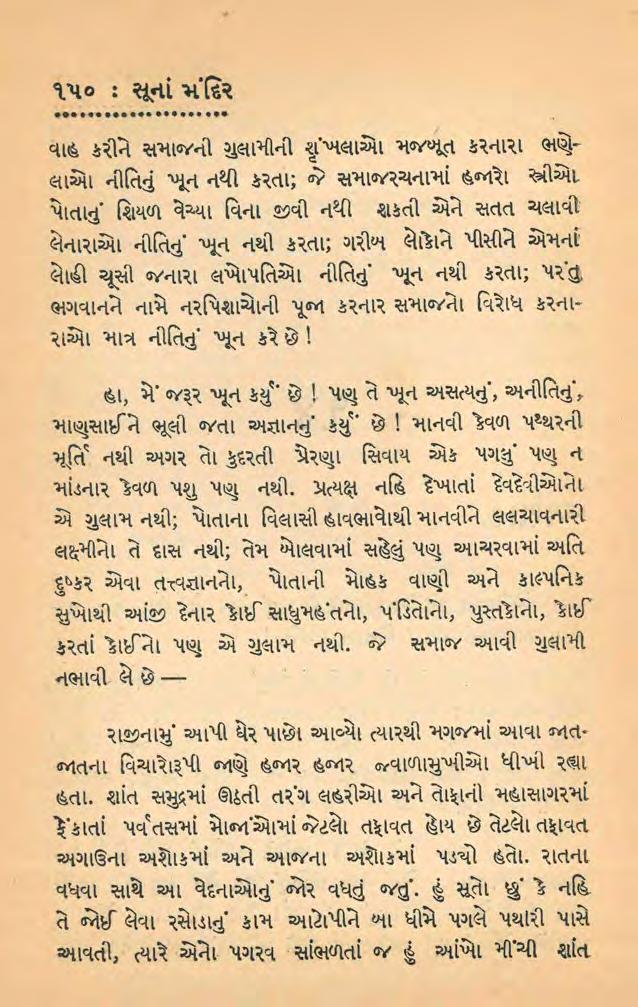 ૧૫૦ : સૂનાં મંદિર
વાહ કરીને સમાજની ગુલામીની શૃંખલાઓ મજબૂત કરનારા ભણે-
લાઓ નીતિનું ખૂન નથી કરતા; જે સમાજરચનામાં હજારો સ્ત્રીઓ
પોતાનું શિયળ વેચ્યા વિના જીવી નથી શકતી એને સતત ચલાવી
લેનારાઓ નીતિનું ખૂન નથી કરતા; ગરીબ લોકોને પીસીને એમનાં
લોહી ચૂસી જનારા લખોપતિઓ નીતિનું ખૂન નથી કરતા; પરંતુ
ભગવાનને નામે નરપિશાચોની પૂજા કરનાર સમાજનો વિરોધ કરના-
રાઓ માત્ર નીતિનું ખૂન કરે છે !
હા, મેં જરૂર ખૂન કર્યું છે ! પણ તે ખૂન અસત્યનું, અનીતિનું,
માણસાઈને ભૂલી જતા અજ્ઞાનનું કર્યું છે ! માનવી કેવળ પથ્થરની
મૂર્તિ નથી અગર તો કુદરતી પ્રેરણા સિવાય એક પગલું પણ ન
માંડનાર કેવળ પશુ પણ નથી. પ્રત્યક્ષ નહિ દેખાતાં દેવદેવીઓનો
એ ગુલામ નથી; પોતાના વિલાસી હાવભાવોથી માનવીને લલચાવનારી
લક્ષ્મીનો તે દાસ નથી; તેમ બોલવામાં સહેલું પણ આચરવામાં અતિ
દુષ્કર એવા તત્ત્વજ્ઞાનનો, પોતાની મોહક વાણી અને કાલ્પનિક
સુખોથી આંજી દેનાર કોઈ સાધુમહંતનો, પંડિતોનો, પુસ્તકોનો, કોઈ
કરતાં કોઈનો પણ એ ગુલામ નથી. જે સમાજ આવી ગુલામી
નભાવી લે છે —
રાજીનામું આપી ઘેર પાછો આવ્યો ત્યારથી મગજમાં આવા જાત-
જાતના વિચારોરૂપી જાણે હજાર હજાર જ્વાળામુખીઓ ધીખી રહ્યા
હતા. શાંત સમુદ્રમાં ઊઠતી તરંગ લહરીઓ અને તોફાની મહાસાગરમાં
ફેંકાતાં પર્વતસમાં મોજાંઓમાં જેટલો તફાવત હોય છે તેટલો તફાવત
અગાઉના અશોકમાં અને આજના અશોકમાં પડ્યો હતો. રાતના
વધવા સાથે આ વેદનાઓનું જોર વધતું જતું. હું સૂતો છું કે નહિ
તે જોઈ લેવા રસોડાનું કામ આટોપીને બા ધીમે પગલે પથારી પાસે
આવતી, ત્યારે એનો પગરવ સાંભળતાં જ હું આંખો મીંચી શાંત